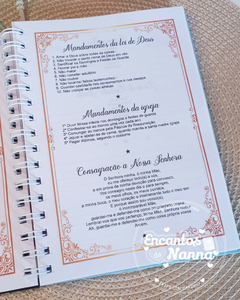 Mandamentos da lei de Deus
1. Amar a Deus sobre todas as coisas
2. Não tomar o santo nome de Deus em vão
3. Santificar os Domingos e Festas de Guarda
4. Honrar pai e mãe
5. Não matar
6. Não cometer adultério
7. Não roubar
8. Não levantar falsos testemunhos
9. Guardar castidade nos pensamentos e nos desejos
10. Não cobiçar as coisas alheias
Mandamentos da igreja
1º Ouvir Missa inteira nos domingos e festas de guarda
2º Confessar-se ao menos uma vez cada ano
3º Comungar ao menos pela Páscoa da Ressurreição
4º Jejuar e abster-se de carne, quando manda a santa madre Igreja
5º Pagar dízimos, segundo o costume
Consagração a Nossa Senhora
Ó Senhora minha, ó minha Mãe,
eu me ofereço todo(a) a vós,
e em prova da minha devoção para convosco,
Vos consagro neste dia e para sempre,
os meus olhos, os meus ouvidos,
a minha boca, o meu coração e inteiramente todo o meu ser.
E porque assim sou vosso,
ó incomparável Mãe,
guardai-me e defendei-me como propriedade vossa.
Lembrai-vos que vos pertenço, terna Mãe, Senhora nossa.
Ah, guardai-me e defendei-me como coisa própria vossa.
Amém.
Encantos
da
Nanna